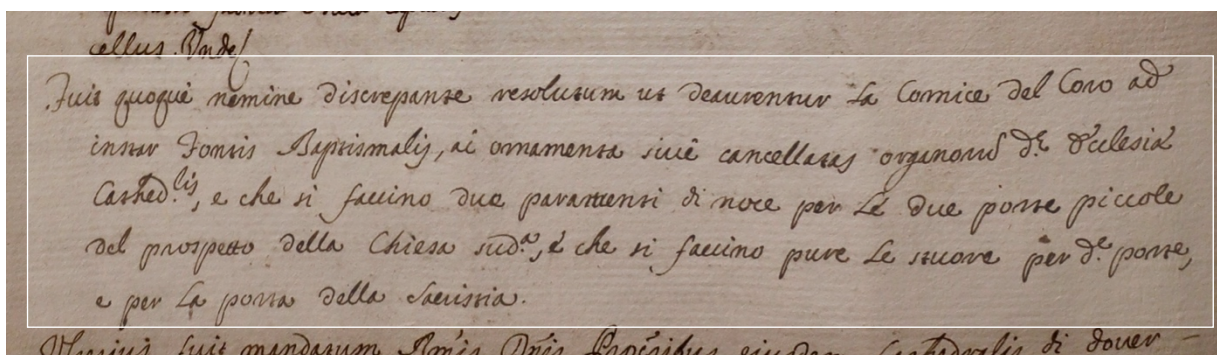 cellus. Unde
Fuit quoque nemine discrepante resolutum ut deaurentur la Cornice del Coro ad
instar Fontis Baptismalis, ac ornamenta sivè cancellatas organorũ d.e Ecclesiæ
Cathed.lis, e che si faccino due paramenti di noce per le due porte piccole
del prospetto della Chiesa sud.a, è che si faccino pure le stuore per d.e porte,
e per la porta della Sacristia.
Ulterius fuit mandatum eiusdem Cathedralis di dover -